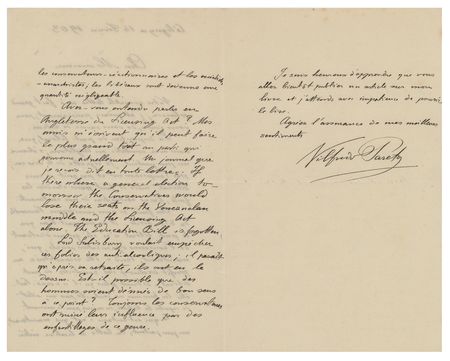 les conservateurs-réactionnaires et les socialistes-
anarchistes, les libéraux sont devenus une
quantité négligeable.
Avez-vous entendu parler en
Angleterre du Licensing Act ? Mes
amis m'écrivent qu'il peut faire
le plus grand tort au parti qui
gouverne actuellement. Un journal que
je reçois dit en toute lettres: If
there were a general election to-
morrow the Conservatives would
lose their seats on the Venezuelan
muddle and the Licensing Act
alone. The Education Bill is forgotten
Lord Salisbury voulait empêcher
ces folies des antialcooliques; il paraît
qu'après sa retraite, ils ont eu le
dessus. Est-il possible que des
hommes soient dénués de bon sens
à ce point ? Toujours les conservateurs
ont miné leur influence par des
enfantillages de ce genre.
Je suis heureux d'apprendre que vous
allez bientôt publier un article sur mon
livre et j'attends avec impatience de pouvoir
le lire.
Agréez l'assurance de mes meilleurs
sentiments
Vilfredo Pareto